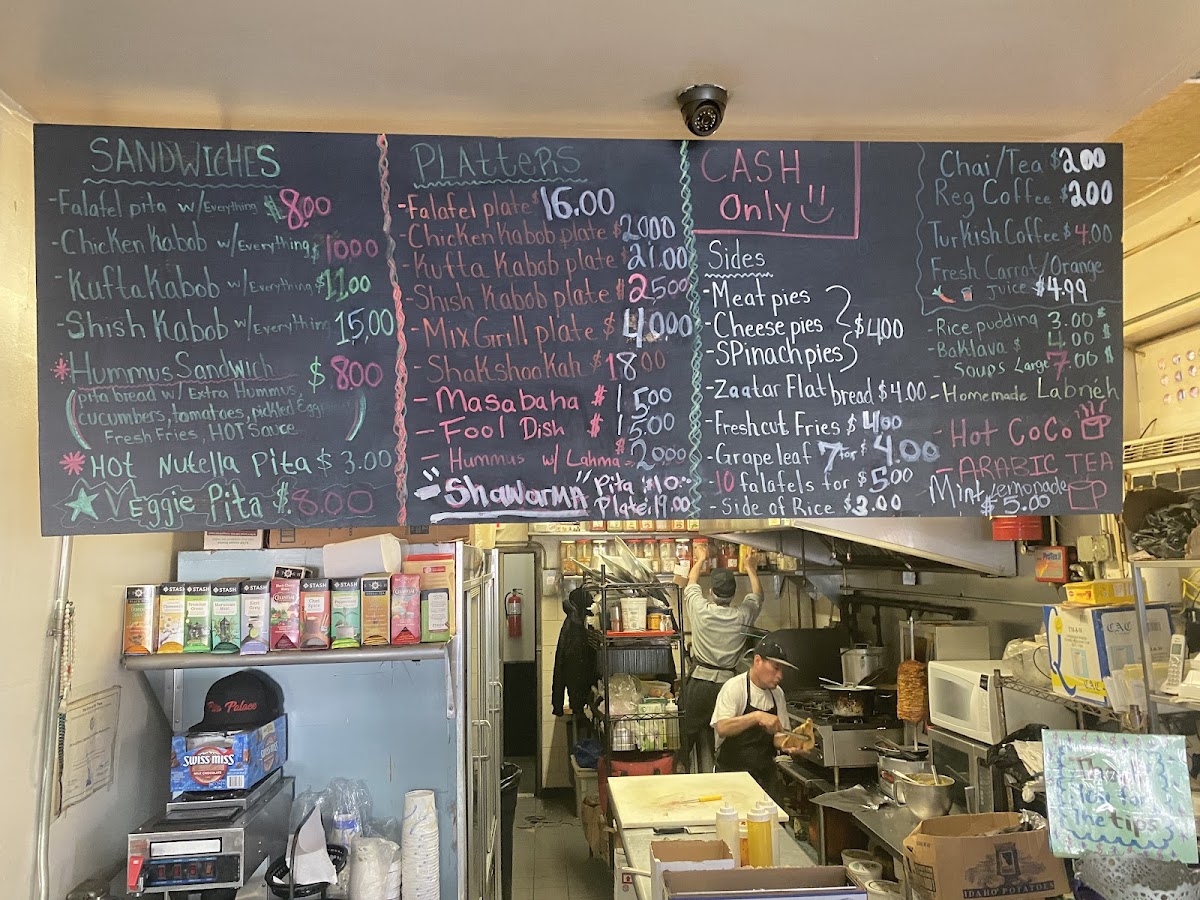 SANDWICHES
-Falafel pita w/Everything $8.00
-Chicken Kabob w/Everything $10.00
-Kufta Kabob w/Everything $11.00
-Shish Kabob w/Everything 15,00
*Hummus Sandwich $8.00
(pita bread w/ Extra Hummus
cucumbers, tomatoes, pickled Egg
Fresh Fries, HOT Sauce)
*HOT Nutella Pita $3.00
Veggie Pita $.8.00
PLATTERS
-Falafel plate $16.00
-Chicken Kabob plate $20.00
-Kufta Kabob plate $21.00
-Shish Kabob plate $25.00
-Mix Grill plate $
-ShaKshooKah $18.00
-Masabaha $15.00
-Fool Dish $15.00
-Hummus w/ Lahma $20.00
-Shawarma Pita $10.00
Plate 19.00
CASH
Only
Sides
-Meat pies
-Cheese pies $4.00
-SPinach pies
-Zaatar Flat bread $4.00
-Fresh cut Fries $4.00
-Grape leaf 7 for $4.00
-10 falafels for $5.00
-Side of Rice $3.00
Chai/Tea $2.00
Reg Coffee $2.00
Turkish Coffee $4.00
Fresh Carrot/Orange
Juice $4.99
-Rice pudding 3.00$
-Baklava $4.00
Soups Large 7.00$
-Homemade Labneh
-Hot CoCo
-ARABIC TEA
Mint Lemonade
$5.00
STASH
STASH
STASH
STASH
STASH
Palace
SWISS MISS
CAC
the tips
IDAHO POTATOES